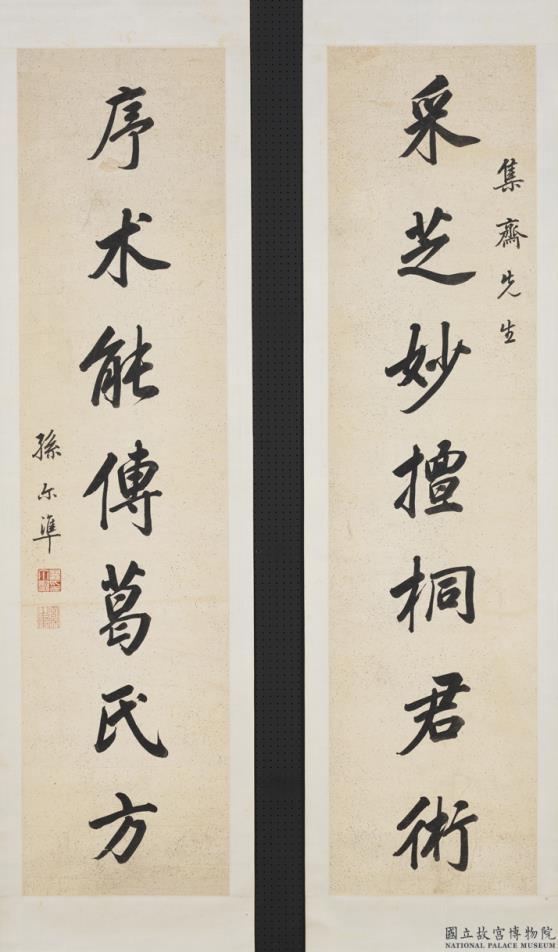 集齋先生
采芝妙擅桐君術
序术能傳葛氏方
孫尔準
國立故宮博物院
NATIONAL PALACE MUSEUM